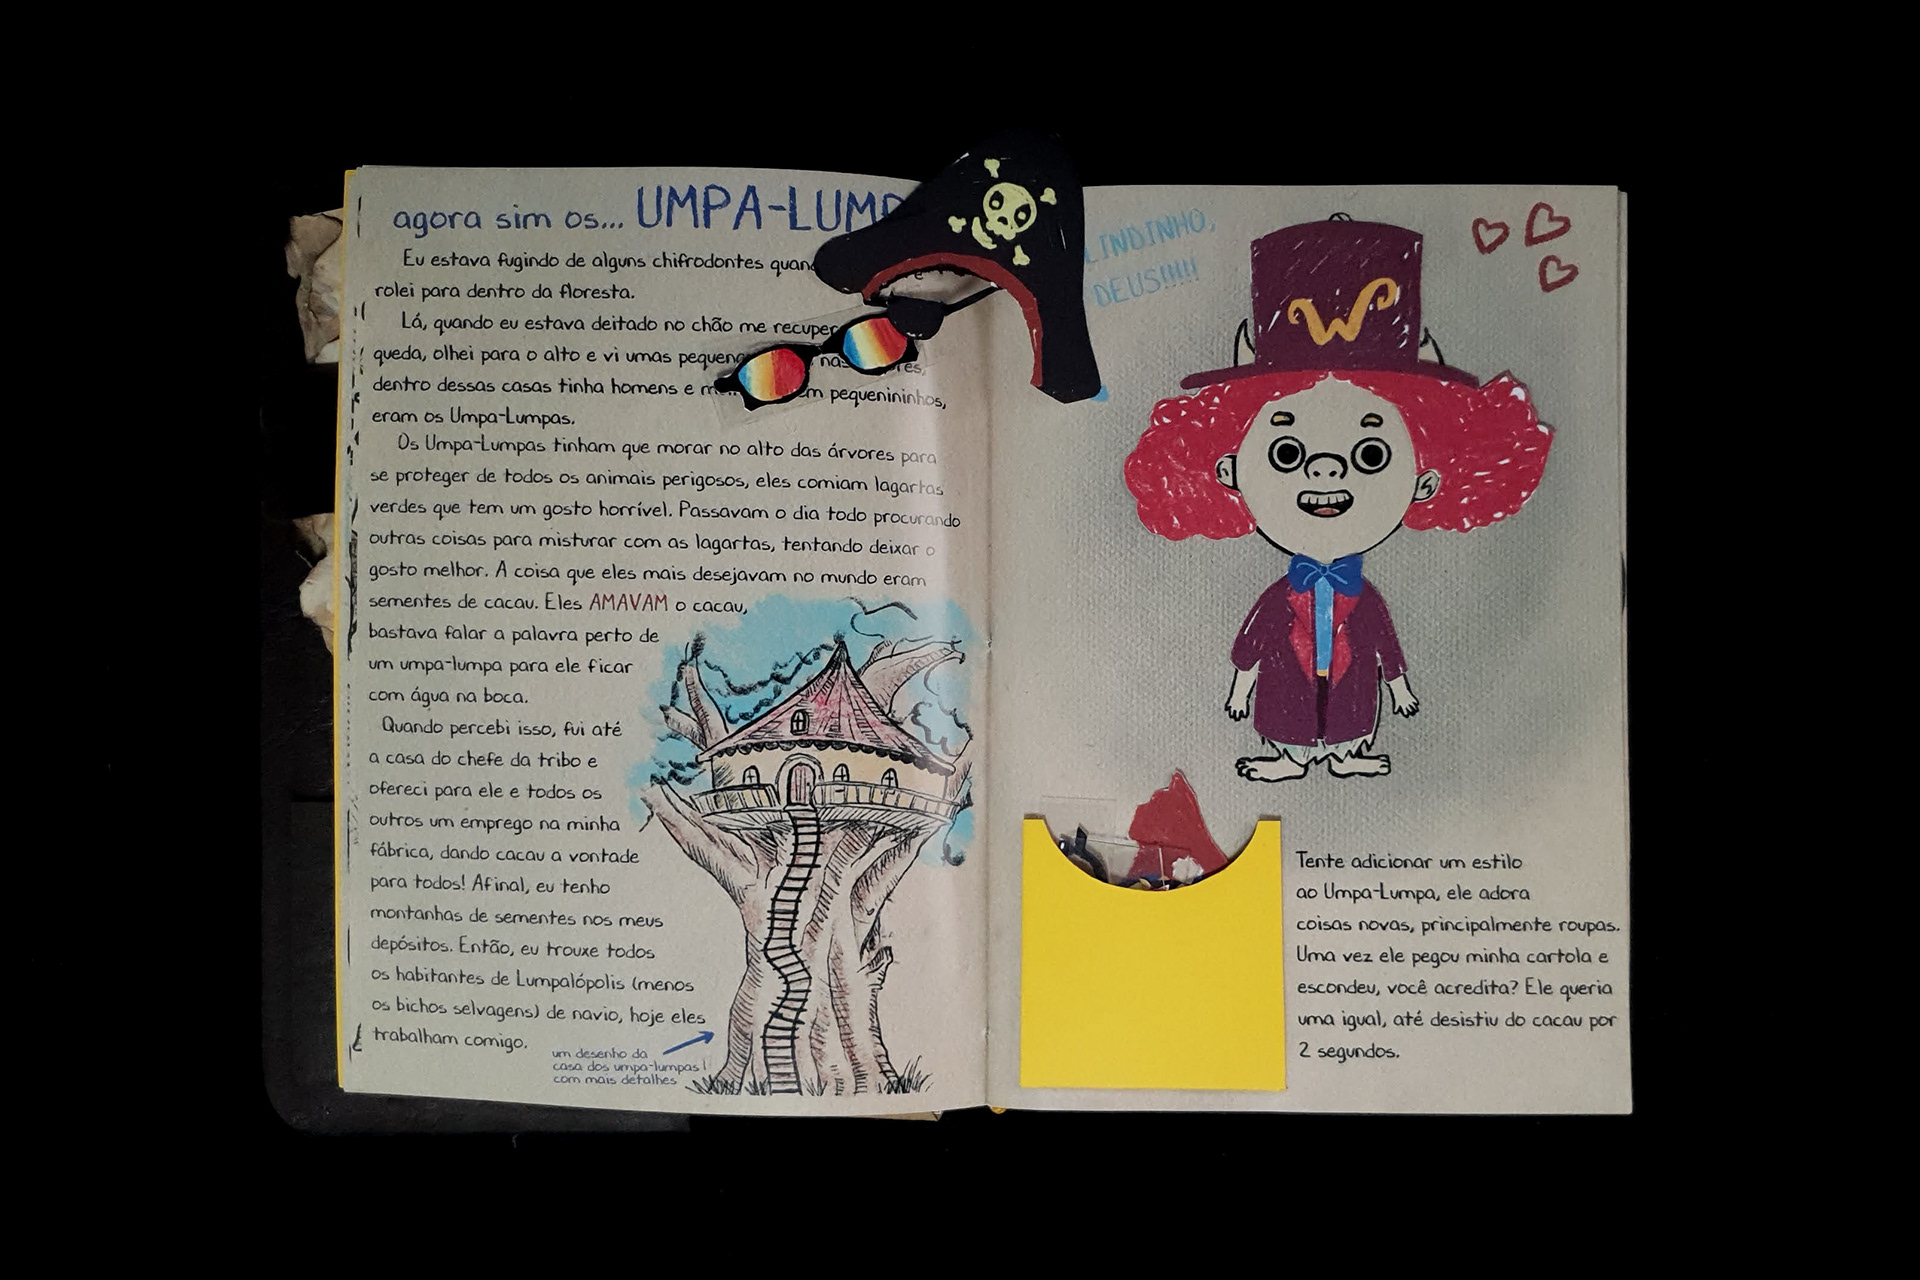 agora sim os... UMPA-LUMP
Eu estava fugindo de alguns chifrodontes quan
rolei para dentro da floresta.
Lá, quando eu estava deitado no chão me recuper
queda, olhei para o alto e vi umas pequen
dentro dessas casas tinha homens e m em pequenininhos,
eram os Umpa-Lumpas.
Os Umpa-Lumpas tinham que morar no alto das árvores para
se proteger de todos os animais perigosos, eles comiam lagartas
verdes que tem um gosto horrível. Passavam o dia todo procurando
outras coisas para misturar com as lagartas, tentando deixar o
gosto melhor. A coisa que eles mais desejavam no mundo eram
sementes de cacau. Eles AMAVAM o cacau,
bastava falar a palavra perto de
um umpa-lumpa para ele ficar
com água na boca.
Quando percebi isso, fui até
a casa do chefe da tribo e
ofereci para ele e todos os
outros um emprego na minha
fábrica, dando cacau a vontade
para todos! Afinal, eu tenho
montanhas de sementes nos meus
depósitos. Então, eu trouxe todos
os habitantes de Lumpalópolis (menos
os bichos selvagens) de navio, hoje eles
trabalham comigo.
um desenho da
casa dos umpa-lumpas
com mais detalhes
LINDINHO,
DEUS!!!!!
W
Tente adicionar um estilo
ao Umpa-Lumpa, ele adora
coisas novas, principalmente roupas.
Uma vez ele pegou minha cartola e
escondeu, você acredita? Ele queria
uma igual, até desistiu do cacau por
2 segundos.